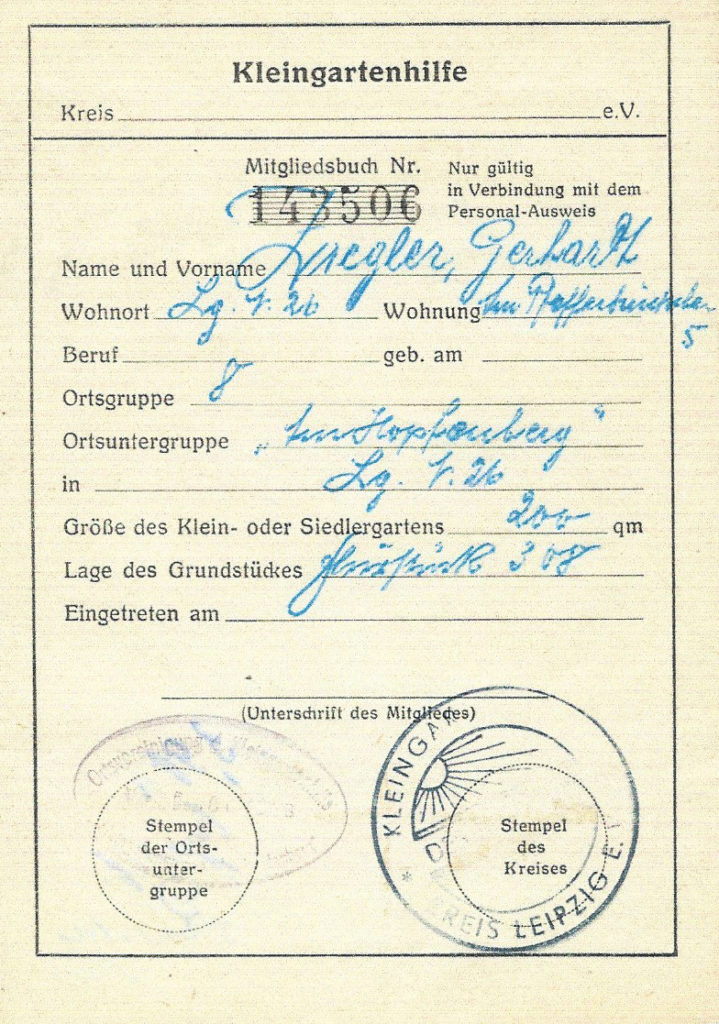 Kleingartenhilfe
Kreis e.V.
Mitgliedsbuch Nr.
143506
Nur gültig
in Verbindung mit dem
Personal-Ausweis
Name und Vorname Ziegler, Gerhardt
Wohnort Lg. N. 26 Wohnung Am
5
Beruf geb. am
Ortsgruppe 8
Ortsuntergruppe „Am Hopfenberg"
in Lg. N. 26
Größe des Klein- oder Siedlergartens 200 qm
Lage des Grundstückes Flurstück 308
Eingetreten am
(Unterschrift des Mitgliedes)
Ortsvereinigung
Stempel
der Orts-
unter-
gruppe
KLEINGA
KREIS LEIPZIG E.
Stempel
des
Kreises